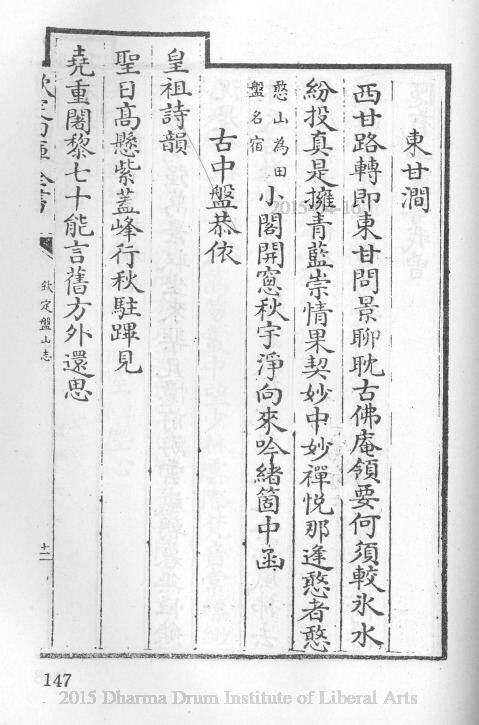 東甘澗
西甘路轉即東甘問景聊耽古佛庵領要何須較氷水
紛投真是擁青藍崇情果契妙中妙禪悅那逢憨者憨
憨山為田
盤名宿
小閣開窻秋宇淨向來吟緒箇中函
古中盤恭依
皇祖詩韻
聖日髙懸紫蓋峰行秋駐蹕見
堯重闍黎七十能言舊方外還思
欽定四庫全書
欽定盤山志
十二
147
2015 Dharma Drum Institute of Liberal Arts